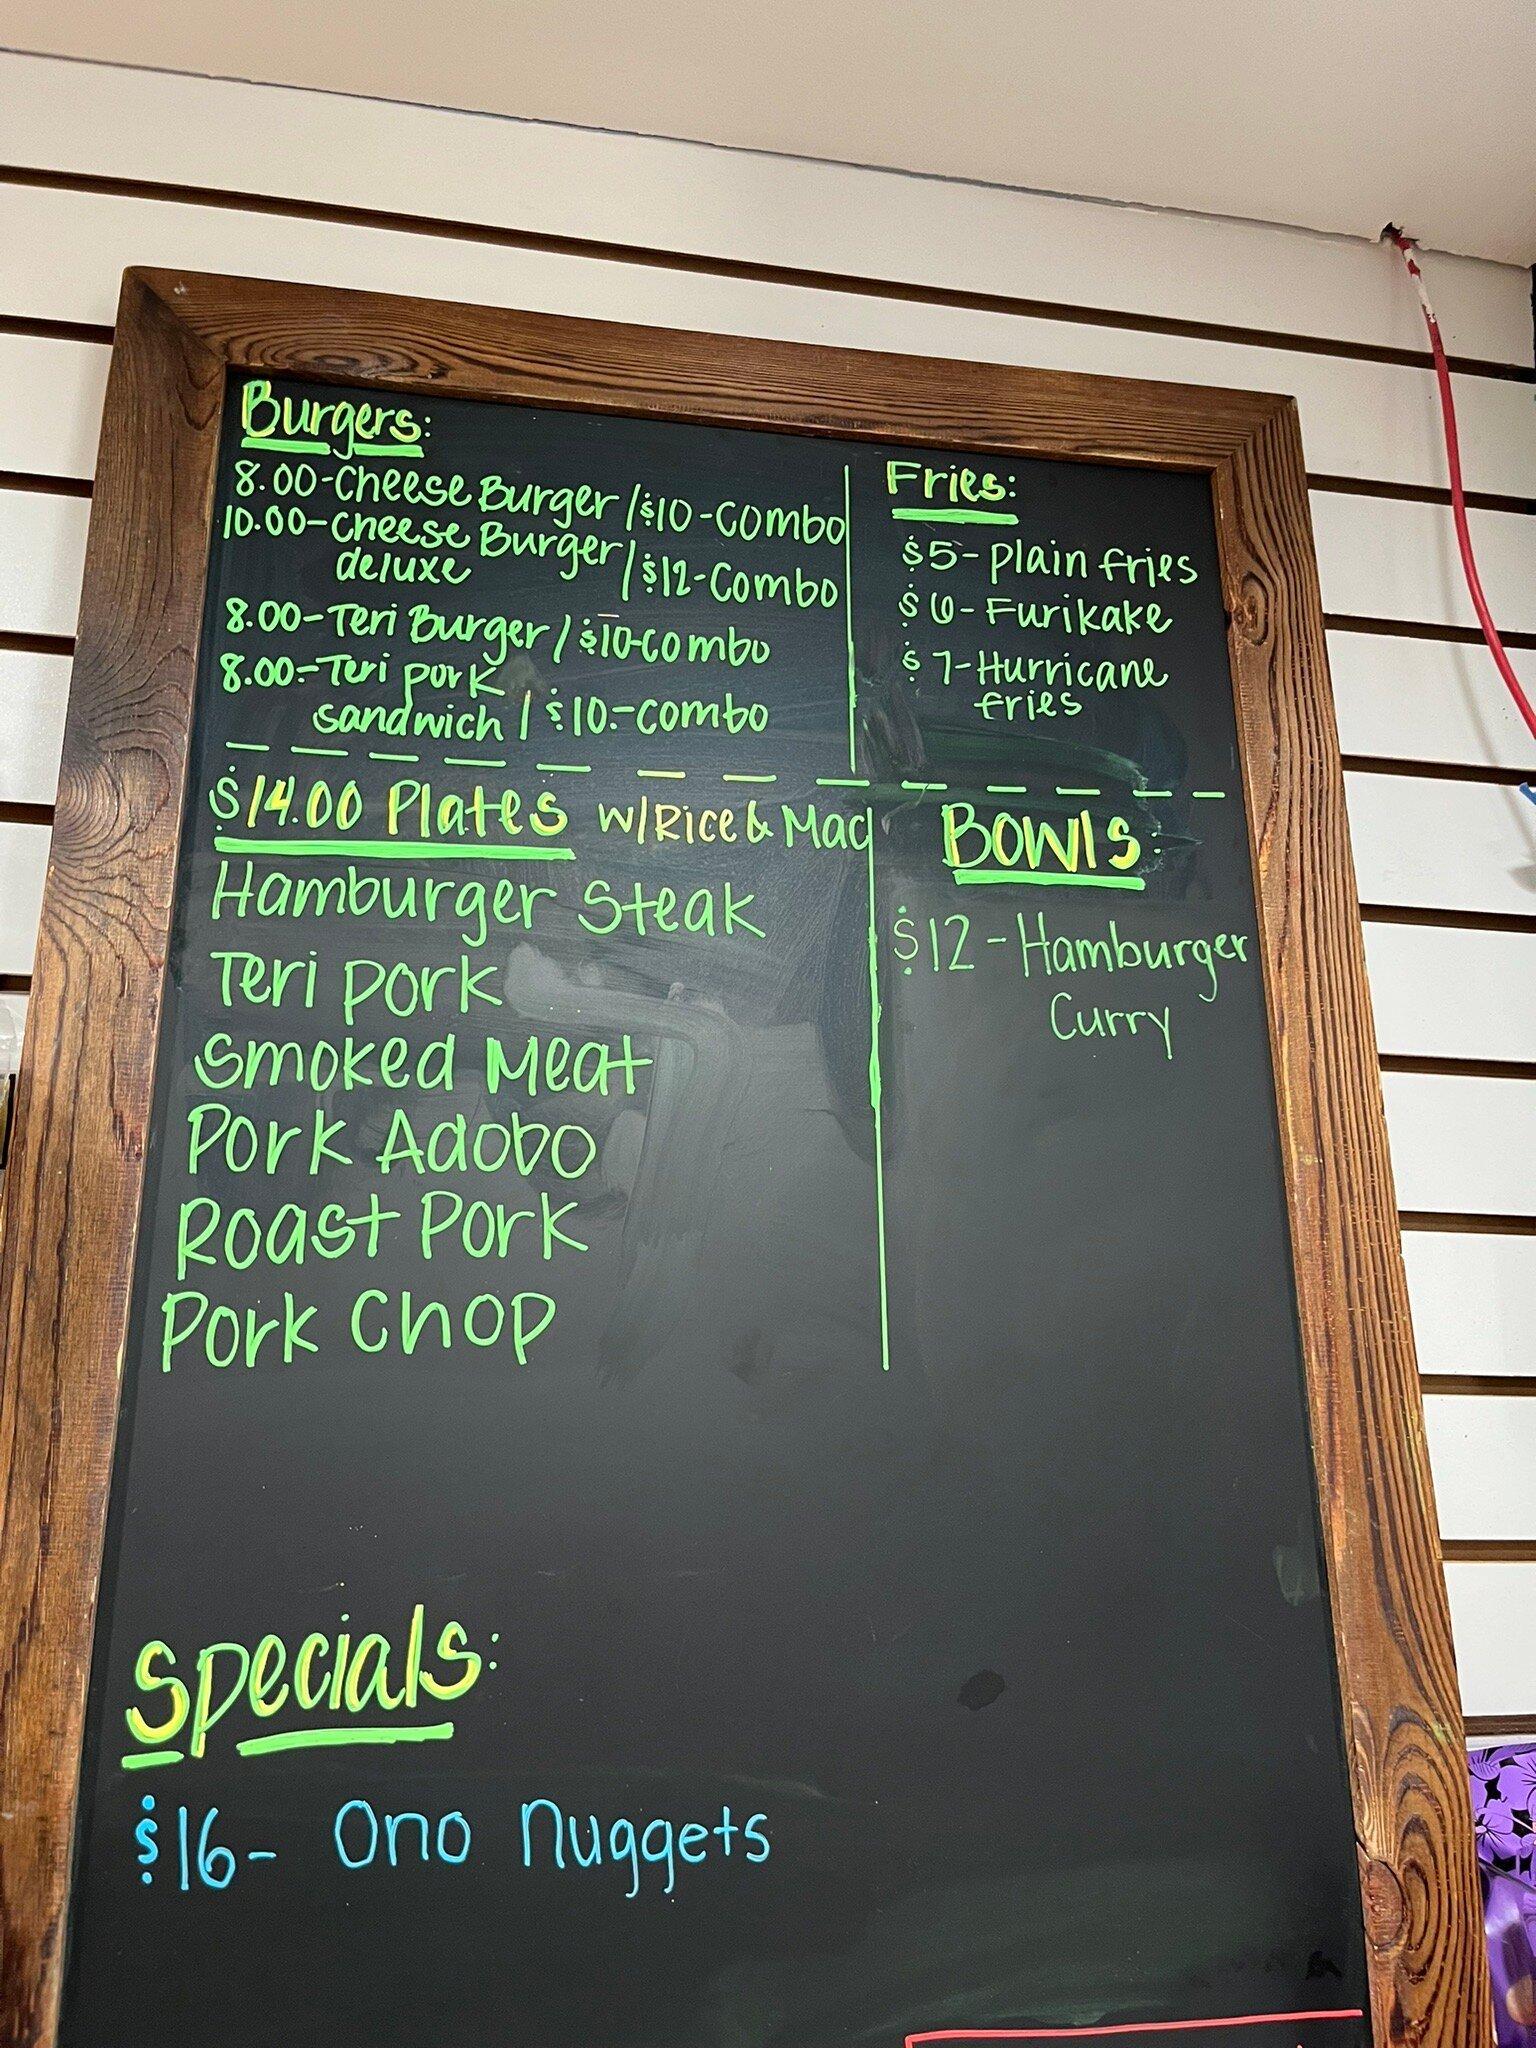 Burgers:
8.00-Cheese Burger / $10-Combo
10.00-Cheese Burger
deluxe / $12-Combo
8.00-Teri Burger / $10-combo
8.00-Teri pork
sandwich / $10.-combo
Fries:
$5-plain fries
$6-Furikake
$7-Hurricane
fries
$14.00 Plates w/Rice & Mac
Hamburger Steak
Teri pork
Smoked Meat
Pork Adobo
Roast Pork
Pork Chop
Bowls:
$12-Hamburger
Curry
Specials:
$16- Ono Nuggets